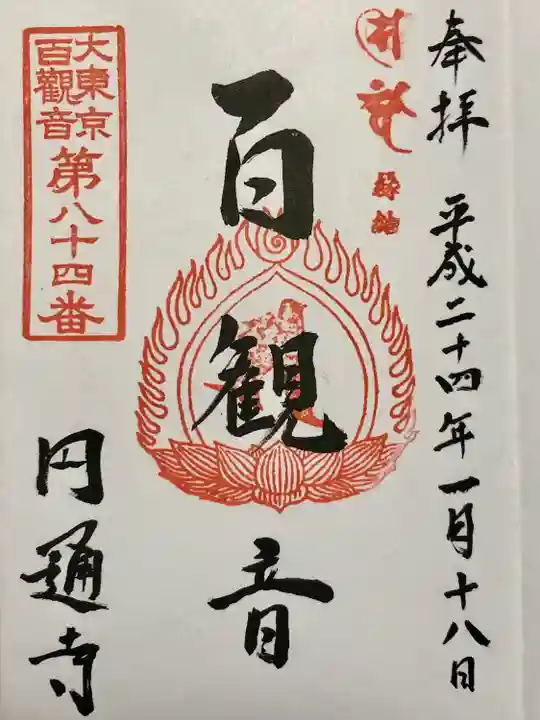 奉拝 平成二十四年一月十八日
百観音
大東京
百觀音
第八十四番
円通寺